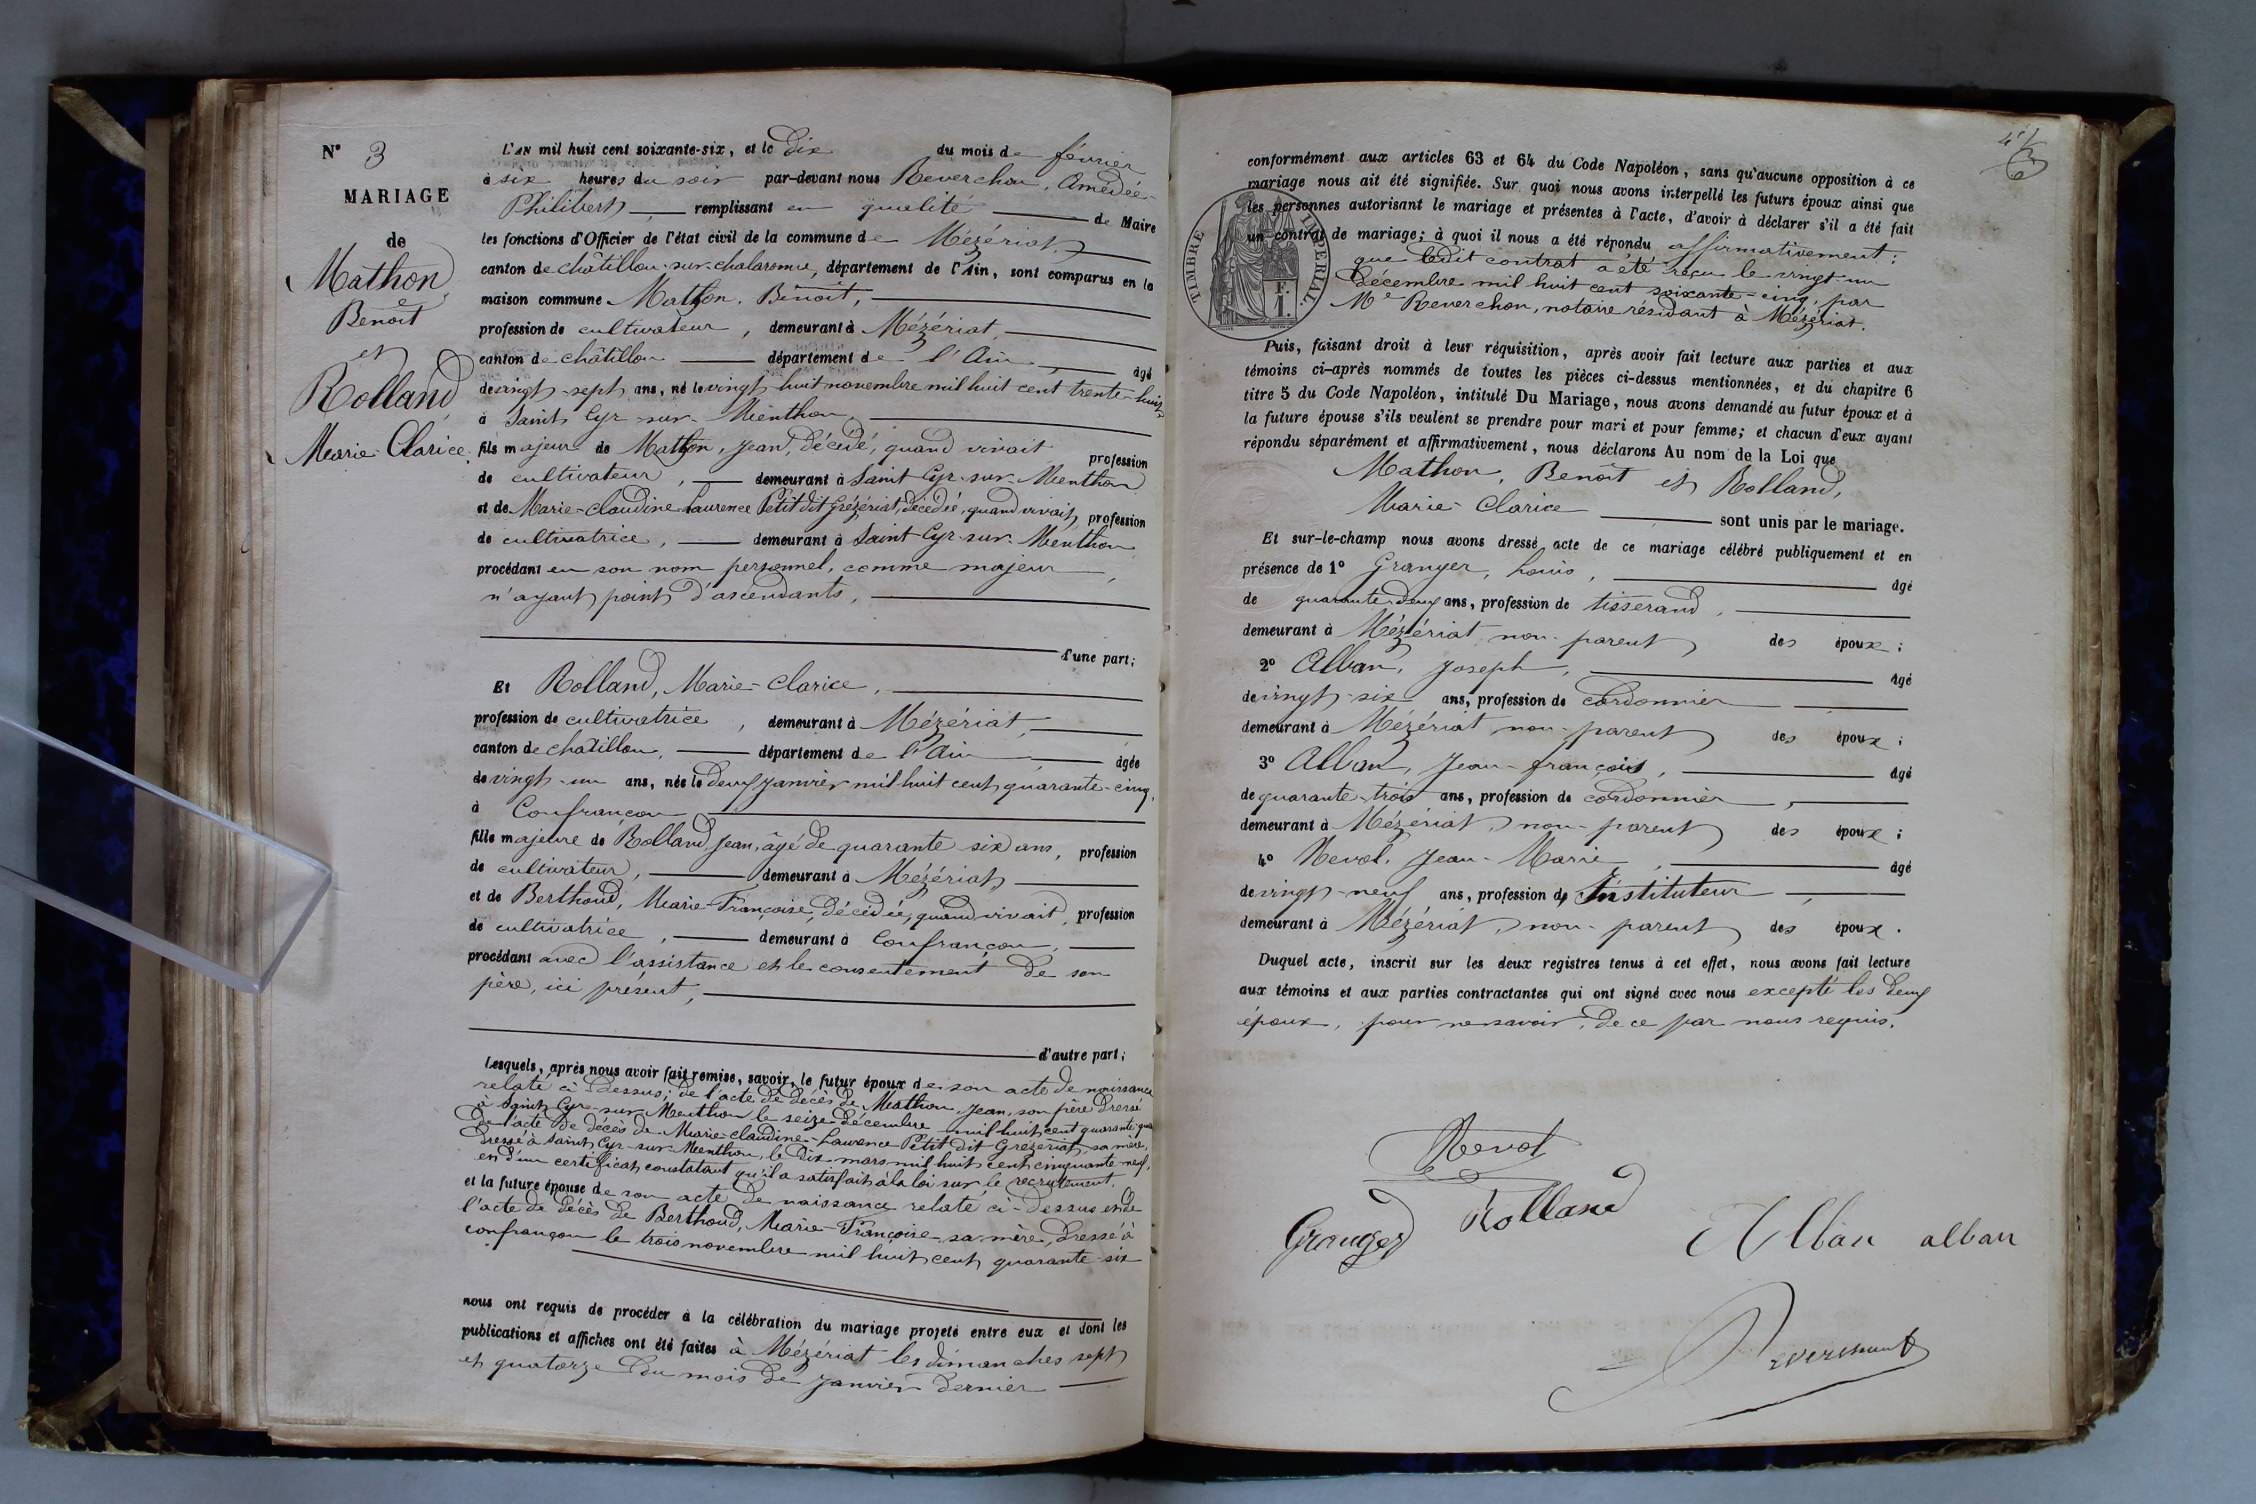 N° 3
MARIAGE
de
Mathon
Benoît
et
Rolland
Marie-Clarice
L'AN mil huit cent soixante-six, et le dix du mois de février
à six heures du soir par-devant nous Reverchon, Amédée-
Philibert, remplissant en qualité de Maire
les fonctions d'Officier de l'état civil de la commune de Mézériat,
canton de châtillon-sur-chalaronne, département de l'Ain, sont comparus en la
maison commune Mathon, Benoît,
profession de cultivateur, demeurant à Mézériat,
canton de châtillon département de l'Ain âgé
de vingt-sept ans, né le vingt huit novembre mil huit cent trente-huit
à Saint Cyr-sur-Menthon,
fils majeur de Mathon, Jean, décédé, quand vivait profession
de cultivateur, demeurant à Saint Cyr-sur-Menthon
et de Marie-claudine-Laurence Petit dit Grézériat, décédée, quand vivait, profession
de cultivatrice, demeurant à Saint Cyr-sur-Menthon
procédant en son nom personnel, comme majeur,
n'ayant point d'ascendants,
d'une part;
Et Rolland, Marie-Clarice,
profession de cultivatrice, demeurant à Mézériat,
canton de chatillon, département de l'Ain âgée
de vingt-un ans, née le deux janvier mil huit cent quarante-cinq,
à Confrançon
fille majeure de Rolland Jean, âgé de quarante six ans, profession
de cultivateur, demeurant à Mézériat,
et de Berthoud, Marie-Françoise, décédée, quand vivait, profession
de cultivatrice, demeurant à Confrançon,
procédant avec l'assistance et le consentement de son
père, ici présent,
d'autre part;
Lesquels, après nous avoir fait remise, savoir, le futur époux de son acte de naissance
relaté ci-dessus; de l'acte de décès de Mathon, Jean, son père dressé
à Saint Cyr-sur-Menthon le seize décembre mil huit cent quarante
de l'acte de décès de Marie-claudine-Laurence Petit dit Grézériat, sa mère,
dressé à Saint Cyr-sur-Menthon, le dix mars mil huit cent cinquante-neuf,
et d'un certificat constatant qu'il a satisfait à la loi sur le recrutement.
et la future épouse de son acte de naissance relaté ci-dessus et de
l'acte de décès de Berthoud, Marie-Françoise sa mère, dressé à
confrançon le trois novembre mil huit cent quarante-six
nous ont requis de procéder à la célébration du mariage projeté entre eux et dont les
publications et affiches ont été faites à Mézériat les dimanches sept
et quatorze du mois de janvier dernier
conformément aux articles 63 et 64 du Code Napoléon, sans qu'aucune opposition à ce
mariage nous ait été signifiée. Sur quoi nous avons interpellé les futurs époux ainsi que
les personnes autorisant le mariage et présentes à l'acte, d'avoir à déclarer s'il a été fait
un contrat de mariage; à quoi il nous a été répondu affirmativement;
que ledit contrat a été reçu le vingt-un
Décembre mil huit cent soixante-cinq, par
Me Reverchon, notaire résidant à Mézériat.
TIMBRE IMPÉRIAL.
Puis, faisant droit à leur réquisition, après avoir fait lecture aux parties et aux
témoins ci-après nommés de toutes les pièces ci-dessus mentionnées, et du chapitre 6
titre 5 du Code Napoléon, intitulé Du Mariage, nous avons demandé au futur époux et à
la future épouse s'ils veulent se prendre pour mari et pour femme; et chacun d'eux ayant
répondu séparément et affirmativement, nous déclarons Au nom de la Loi que
Mathon, Benoît et Rolland,
Marie-Clarice sont unis par le mariage.
Et sur-le-champ nous avons dressé acte de ce mariage célébré publiquement et en
présence de 1° Granger, Louis, âgé
de quarante-deux ans, profession de tisserand,
demeurant à Mézériat non-parent des époux;
2° Alban, Joseph, âgé
de vingt-six ans, profession de cordonnier
demeurant à Mézériat non-parent des époux;
3° Alban, Jean-françois, âgé
de quarante-trois ans, profession de cordonnier,
demeurant à Mézériat, non-parent des époux;
4° Nevol, Jean-Marie, âgé
de vingt-neuf ans, profession d'Instituteur,
demeurant à Mézériat, non-parent des époux.
Duquel acte, inscrit sur les deux registres tenus à cet effet, nous avons fait lecture
aux témoins et aux parties contractantes qui ont signé avec nous excepté les deux
époux, pour ne savoir, de ce par nous requis.
Nevol
Granger Rolland Alban alban
Reverchon